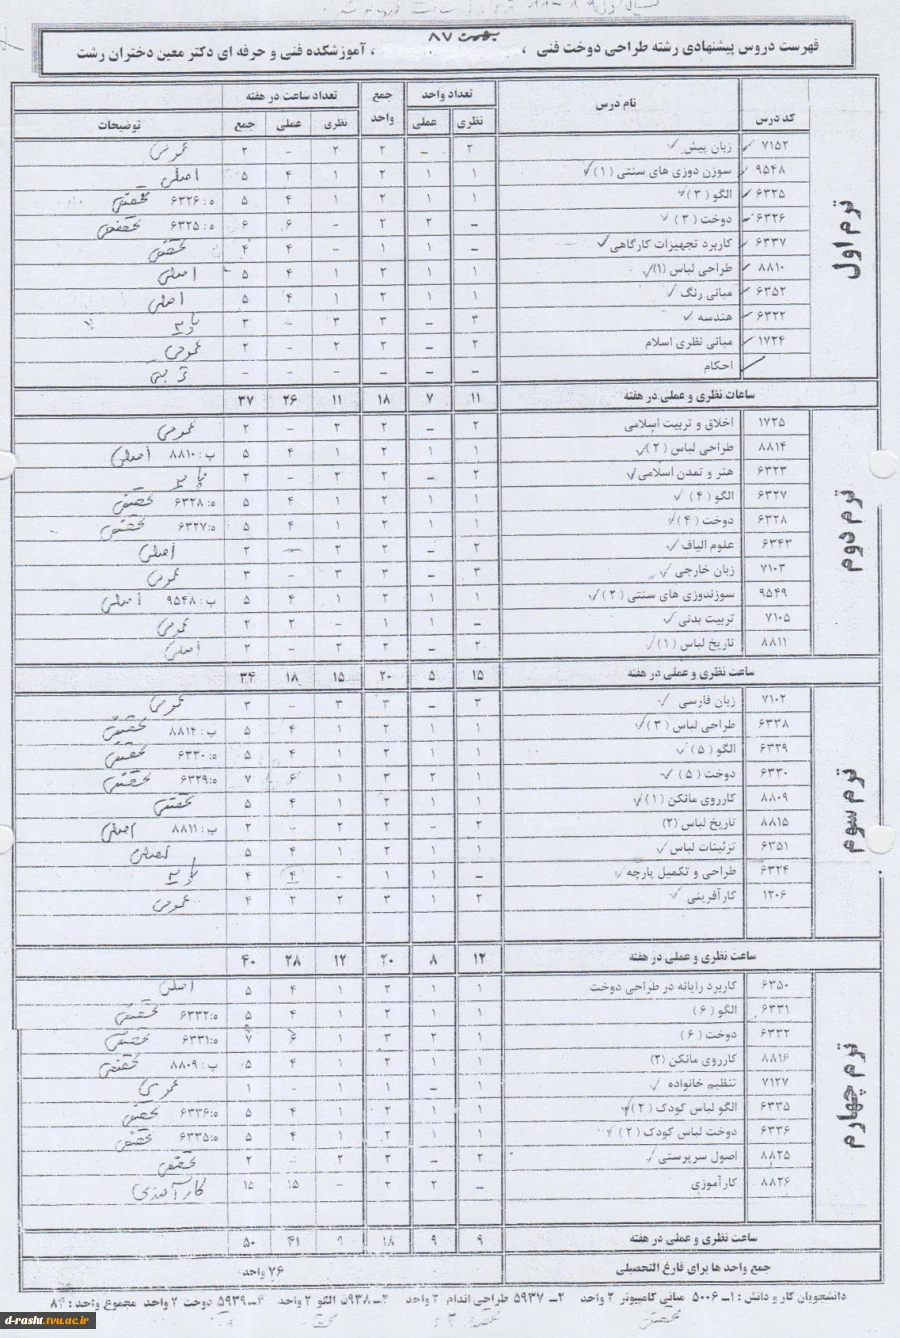 بهمن ۸۷
فهرست دروس پیشنهادی رشته طراحی دوخت فنی ، ، آموزشکده فنی و حرفه ای دکتر معین دختران رشت
کد درس نام درس تعداد واحد جمع واحد تعداد ساعت در هفته توضیحات
نظری عملی نظری عملی جمع
ترم اول
۷۱۵۲ زبان پیش ۲ – ۲ ۲ – ۲ عمومی
۹۵۴۸ سوزن دوزی های سنتی (۱) ۱ ۱ ۲ ۱ ۴ ۵ اصلی
۶۳۲۵ الگو (۳) ۱ ۱ ۲ ۱ ۴ ۵ ه: ۶۳۲۶ تخصصی
۶۳۲۶ دوخت (۳) – ۲ ۲ – ۶ ۶ ه: ۶۳۲۵ تخصصی
۶۳۳۷ کاربرد تجهیزات کارگاهی – ۱ ۱ – ۴ ۴ تخصصی
۸۸۱۰ طراحی لباس (۱) ۱ ۱ ۲ ۱ ۴ ۵ اصلی
۶۳۵۲ مبانی رنگ ۱ ۱ ۲ ۱ ۴ ۵ اصلی
۶۳۲۲ هندسه ۳ – ۳ ۳ – ۳ پایه
۱۷۲۴ مبانی نظری اسلام ۲ – ۲ ۲ – ۲ عمومی
احکام – – – – – –
ساعات نظری و عملی در هفته ۱۱ ۷ ۱۸ ۱۱ ۲۶ ۳۷
ترم دوم
۱۷۲۵ اخلاق و تربیت اسلامی ۲ – ۲ ۲ – ۲ عمومی
۸۸۱۴ طراحی لباس (۲) ۱ ۱ ۲ ۱ ۴ ۵ ب: ۸۸۱۰ اصلی
۶۳۲۳ هنر و تمدن اسلامی ۲ – ۲ ۲ – ۲ پایه
۶۳۲۷ الگو (۴) ۱ ۱ ۲ ۱ ۴ ۵ ه: ۶۳۲۸ تخصصی
۶۳۲۸ دوخت (۴) ۱ ۱ ۲ ۱ ۴ ۵ ه: ۶۳۲۷ تخصصی
۶۳۴۳ علوم الیاف ۲ – ۲ ۲ – ۲ اصلی
۷۱۰۳ زبان خارجی ۳ – ۳ ۳ – ۳ عمومی
۹۵۴۹ سوزندوزی های سنتی (۲) ۱ ۱ ۲ ۱ ۴ ۵ ب: ۹۵۴۸ اصلی
۷۱۰۵ تربیت بدنی – ۱ ۱ – ۲ ۲ عمومی
۸۸۱۱ تاریخ لباس (۱) ۲ – ۲ ۲ – ۲ اصلی
ساعت نظری و عملی در هفته ۱۵ ۵ ۲۰ ۱۵ ۱۸ ۳۴
ترم سوم
۷۱۰۲ زبان فارسی ۳ – ۳ ۳ – ۳ عمومی
۶۳۳۸ طراحی لباس (۳) ۱ ۱ ۲ ۱ ۴ ۵ ب: ۸۸۱۴ تخصصی
۶۳۲۹ الگو (۵) ۱ ۱ ۲ ۱ ۴ ۵ ه: ۶۳۳۰ تخصصی
۶۳۳۰ دوخت (۵) ۱ ۲ ۳ ۱ ۶ ۷ ه: ۶۳۲۹ تخصصی
۸۸۰۹ کارروی مانکن (۱) ۱ ۱ ۲ ۱ ۴ ۵ تخصصی
۸۸۱۵ تاریخ لباس (۲) ۲ – ۲ ۲ – ۲ ب: ۸۸۱۱ اصلی
۶۳۵۱ تزئینات لباس ۱ ۱ ۲ ۱ ۴ ۵ اصلی
۶۳۲۴ طراحی و تکمیل پارچه – ۱ ۱ – ۴ ۴ پایه
۱۲۰۶ کارآفرینی ۲ ۱ ۳ ۲ ۲ ۴ عمومی
ساعت نظری و عملی در هفته ۱۲ ۸ ۲۰ ۱۲ ۲۸ ۴۰
ترم چهارم
۶۳۵۰ کاربرد رایانه در طراحی دوخت ۱ ۱ ۲ ۱ ۴ ۵ اصلی
۶۳۳۱ الگو (۶) ۱ ۱ ۲ ۱ ۴ ۵ ه: ۶۳۳۲ تخصصی
۶۳۳۲ دوخت (۶) ۱ ۲ ۳ ۱ ۶ ۷ ه: ۶۳۳۱ تخصصی
۸۸۱۶ کارروی مانکن (۲) ۱ ۱ ۲ ۱ ۴ ۵ ب: ۸۸۰۹ تخصصی
۷۱۲۷ تنظیم خانواده ۱ – ۱ ۱ – ۱ عمومی
۶۳۳۵ الگو لباس کودک (۲) ۱ ۱ ۲ ۱ ۴ ۵ ه: ۶۳۳۶ تخصصی
۶۳۳۶ دوخت لباس کودک (۲) ۱ ۱ ۲ ۱ ۴ ۵ ه: ۶۳۳۵ تخصصی
۸۸۲۵ اصول سرپرستی ۲ – ۲ ۲ – ۲ تخصصی
۸۸۲۶ کارآموزی – ۲ ۲ – ۱۵ ۱۵ کارآموزی
ساعت نظری و عملی در هفته ۹ ۹ ۱۸ ۹ ۴۱ ۵۰
جمع واحد ها برای فارغ التحصیلی ۷۶ واحد
دانشجویان کار و دانش : ۱ـ ۵۰۰۶ مبانی کامپیوتر ۲ واحد ۲ـ ۵۹۳۷ طراحی اندام ۲ واحد ۳ـ ۵۹۳۸ الگو ۲ واحد ۴ـ ۵۹۳۹ دوخت ۲ واحد مجموع واحد : ۸۴
d-rasht.tvu.ac.ir